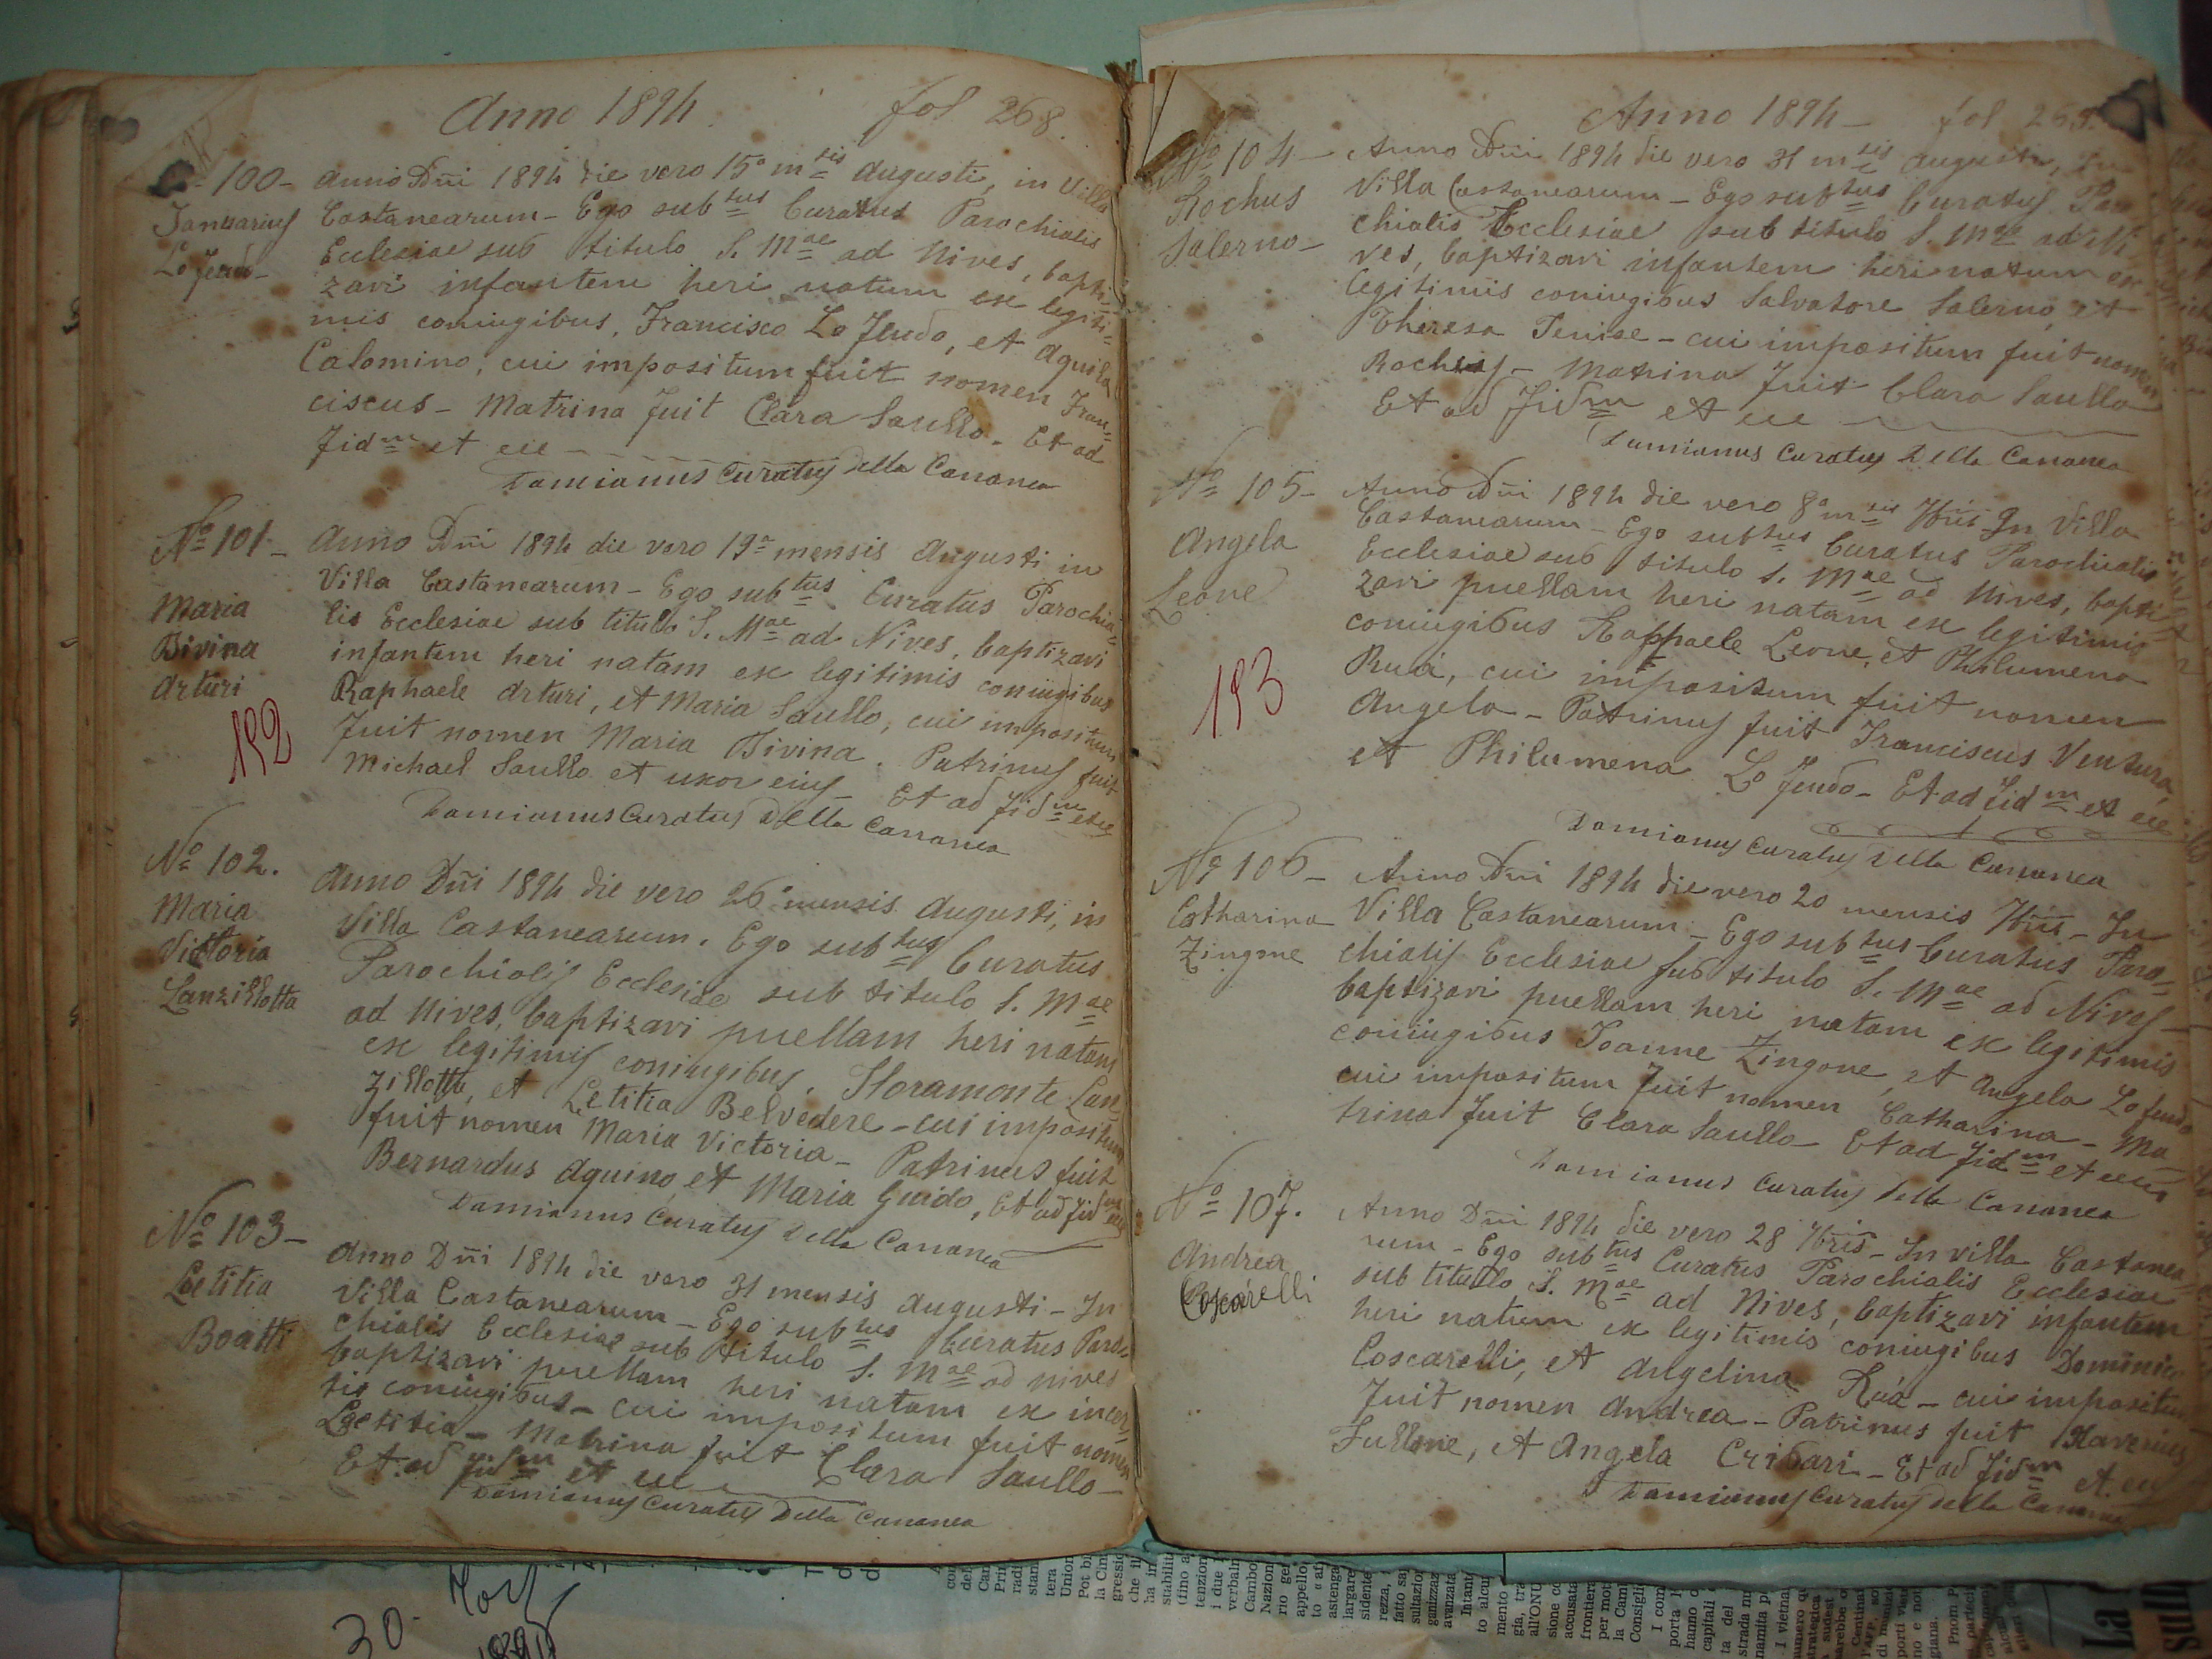 Anno 1894
fol 268.
100-
Januarius
Lo Feudo-
Anno Dñi 1894 die vero 15º msis Augusti, in Villa
Castanearum - Ego subtus Curatus Parochialis
Ecclesiae sub titulo S. Mae ad Nives, bapti=
zavi infantem heri natum ex legiti=
mis coniugibus, Francisco Lo Feudo, et Aquila
Calomino, cui impositum fuit nomen Fran=
ciscus - Matrina fuit Clara Saullo - Et ad
fidm et ece
Damianus Curatus Della Cananea
Nº 101-
Maria
Divina
Arturi
192
Anno Dñi 1894 die vero 19º mensis Augusti in
Villa Castanearum - Ego subtus Curatus Parochia=
lis Ecclesiae sub titulo S. Mae ad Nives, baptizavi
infantem heri natam ex legitimis coniugibus
Raphaele Arturi, et Maria Saullo, cui impositum
fuit nomen Maria Divina. Patrinus fuit
Michael Saullo et uxor eius - Et ad fidm et ece
Damianus Curatus Della Cananea
Nº 102.
Maria
Victoria
Lanzillotta
Anno Dñi 1894 die vero 26 mensis Augusti, in
Villa Castanearum. Ego subtus Curatus
Parochialis Ecclesiae sub titulo S. Mae
ad Nives, baptizavi puellam heri natam
ex legitimis coniugibus, Floramonte Lan=
zillotta, et Letitia Belvedere - cui impositum
fuit nomen Maria Victoria - Patrinus fuit
Bernardus Aquino, et Maria Guido, Et ad fidm ece
Damianus Curatus Della Cananea
Nº 103-
Letitia
Boatti
Anno Dñi 1894 die vero 31 mensis Augusti - In
Villa Castanearum - Ego subtus Curatus Paro=
chialis Ecclesiae sub titulo S. Mae ad Nives
baptizavi puellam heri natam ex incer=
tis coniugibus - cui impositum fuit nomen
Laetitia - Matrina fuit Clara Saullo -
Et ad fidm et ece
Damianus Curatus Della Cananea
Anno 1894 -
fol 269.
Nº 104-
Rochus
Salerno-
Anno Dñi 1894 die vero 31 msis Augusti, In
Villa Castanearum - Ego subtus Curatus Paro
chialis Ecclesiae sub titulo S. Mae ad Ni
ves, baptizavi infantem heri natum ex
legitimis coniugibus Salvatore Salerno, et
Theresa Tenise - cui impositum fuit nomen
Rochus - Matrina fuit Clara Saullo
Et ad fidm et ece
Damianus Curatus Della Cananea
Nº 105-
Angela
Leone
193
Anno Dñi 1894 die vero 8º msis 7bris In Villa
Castanearum - Ego subtus Curatus Parochialis
Ecclesiae sub titulo S. Mae ad Nives, bapti=
zavi puellam heri natam ex legitimis
coniugibus Raffaele Leone, et Philumena
Ruà, cui impositum fuit nomen
Angela - Patrinus fuit Franciscus Ventura,
et Philumena Lo Feudo - Et ad fidm et ece
Damianus Curatus Della Cananea
Nº 106-
Catharina
Zingone
Anno Dñi 1894 die vero 20 mensis 7bris - In
Villa Castanearum - Ego subtus Curatus Paro=
chialis Ecclesiae sub titulo S. Mae ad Nives -
baptizavi puellam heri natam ex legitimis
coniugibus Joanne Zingone, et Angela Lo Feudo
cui impositum fuit nomen Catharina - Ma=
trina fuit Clara Saullo Et ad fidm et ece
Damianus Curatus Della Cananea
Nº 107.
Andrea
Coscarelli
Anno Dñi 1894 die vero 28 7bris - In villa Castanea=
rum - Ego subtus Curatus Parochialis Ecclesiae
sub titulo S. Mae ad Nives, baptizavi infantem
heri natum ex legitimis coniugibus Dominico
Coscarelli, et Angelina Ruà - cui impositum
fuit nomen Andrea - Patrinus fuit Xaverius
Fullone, et Angela Cribari - Et ad fidm et ece
Damianus Curatus Della Cananea
30